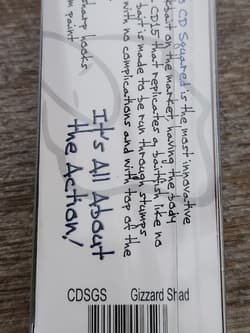 CD Squared is the most innovative
on the market, having the body
that replicates a baitfish like no
bait is made to be run through stumps
with no complications and with top of the
sharp hooks
paint
It's All About
the Action!
CDSGS Gizzard Shad